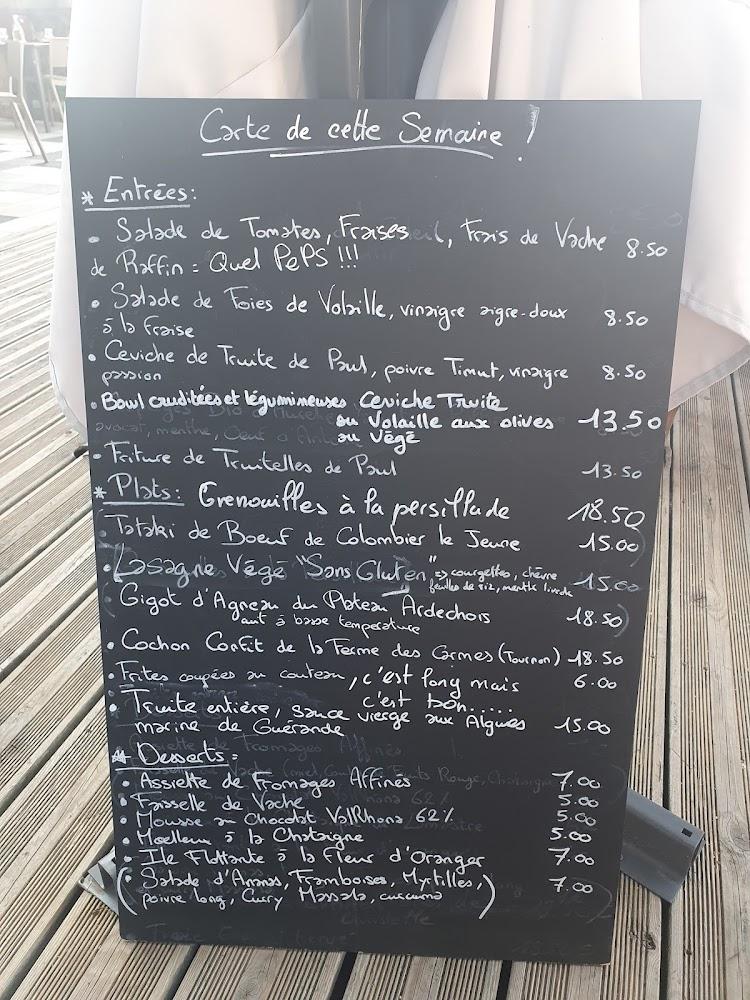 Carte de cette Semaine !
* Entrées :
• Salade de Tomates, Fraises, Frais de Vache 8.50
de Raffin = Quel PePS !!!
• Salade de Foies de Volaille, vinaigre aigre-doux 8.50
à la Fraise
• Ceviche de Truite de Paul, poivre Timut, vinaigre 8.50
passion
• Bowl cruditées et légumineuses Ceviche Truite
ou Volaille aux olives 13.50
ou Végé
• Friture de Truitelles de Paul 13.50
* Plats : Grenouilles à la persillade 18.50
• Tataki de Boeuf de Colombier le Jeune 15.00
• Lasagne Végé "Sans Gluten" => courgettes, chèvre 15.00
feuilles de riz, menthe
• Gigot d'Agneau du Plateau Ardechois 18.50
cuit à basse température
• Cochon Confit de la Ferme des Carmes (Tournon) 18.50
• Frites coupées au couteau, c'est long mais 6.00
c'est bon.....
• Truite entière, sauce vierge aux Algues 15.00
marine de Guérande
* Desserts :
• Assiette de Fromages Affinés 7.00
• Faisselle de Vache 5.00
• Mousse au Chocolat ValRhona 62% 5.00
• Moelleux à la Chataigne 5.00
• Ile Flottante à la Fleur d'Oranger 7.00
( Salade d'Ananas, Framboises, Myrtilles, 7.00
poivre long, Curry Massala, curcuma )